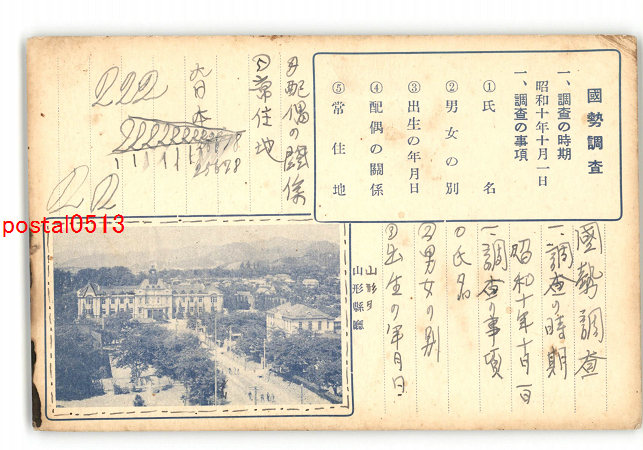 國勢調査
一、調査の時期
昭和十年十月一日
一、調査の事項
①氏名
②男女の別
③出生の年月日
④配偶の關係
⑤常住地
國勢調査
一、調査の時期
昭和十年十月一日
一、調査の事項
①氏名
②男女の別
③出生の年月日
④配偶の關係
⑤常住地
大日本
222
22
山形縣廳
postal0513